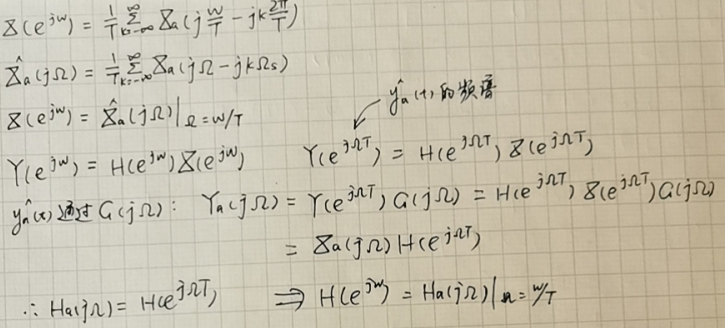 X(e^{jω}) = 1/T Σ_{k=-∞}^{∞} Xa(j ω/T - jk 2π/T)
X̂a(jΩ) = 1/T Σ_{k=-∞}^{∞} Xa(jΩ - jkΩs)
ŷa(t) 的频谱
X(e^{jω}) = X̂a(jΩ)|Ω=ω/T
Y(e^{jω}) = H(e^{jω}) X(e^{jω}) Y(e^{jΩT}) = H(e^{jΩT}) X(e^{jΩT})
ŷa(t) 通过 G(jΩ): Ya(jΩ) = Y(e^{jΩT}) G(jΩ) = H(e^{jΩT}) X(e^{jΩT}) G(jΩ)
= Xa(jΩ) H(e^{jΩT})
∴ Ha(jΩ) = H(e^{jΩT}) ⇒ H(e^{jω}) = Ha(jΩ)|Ω=ω/T